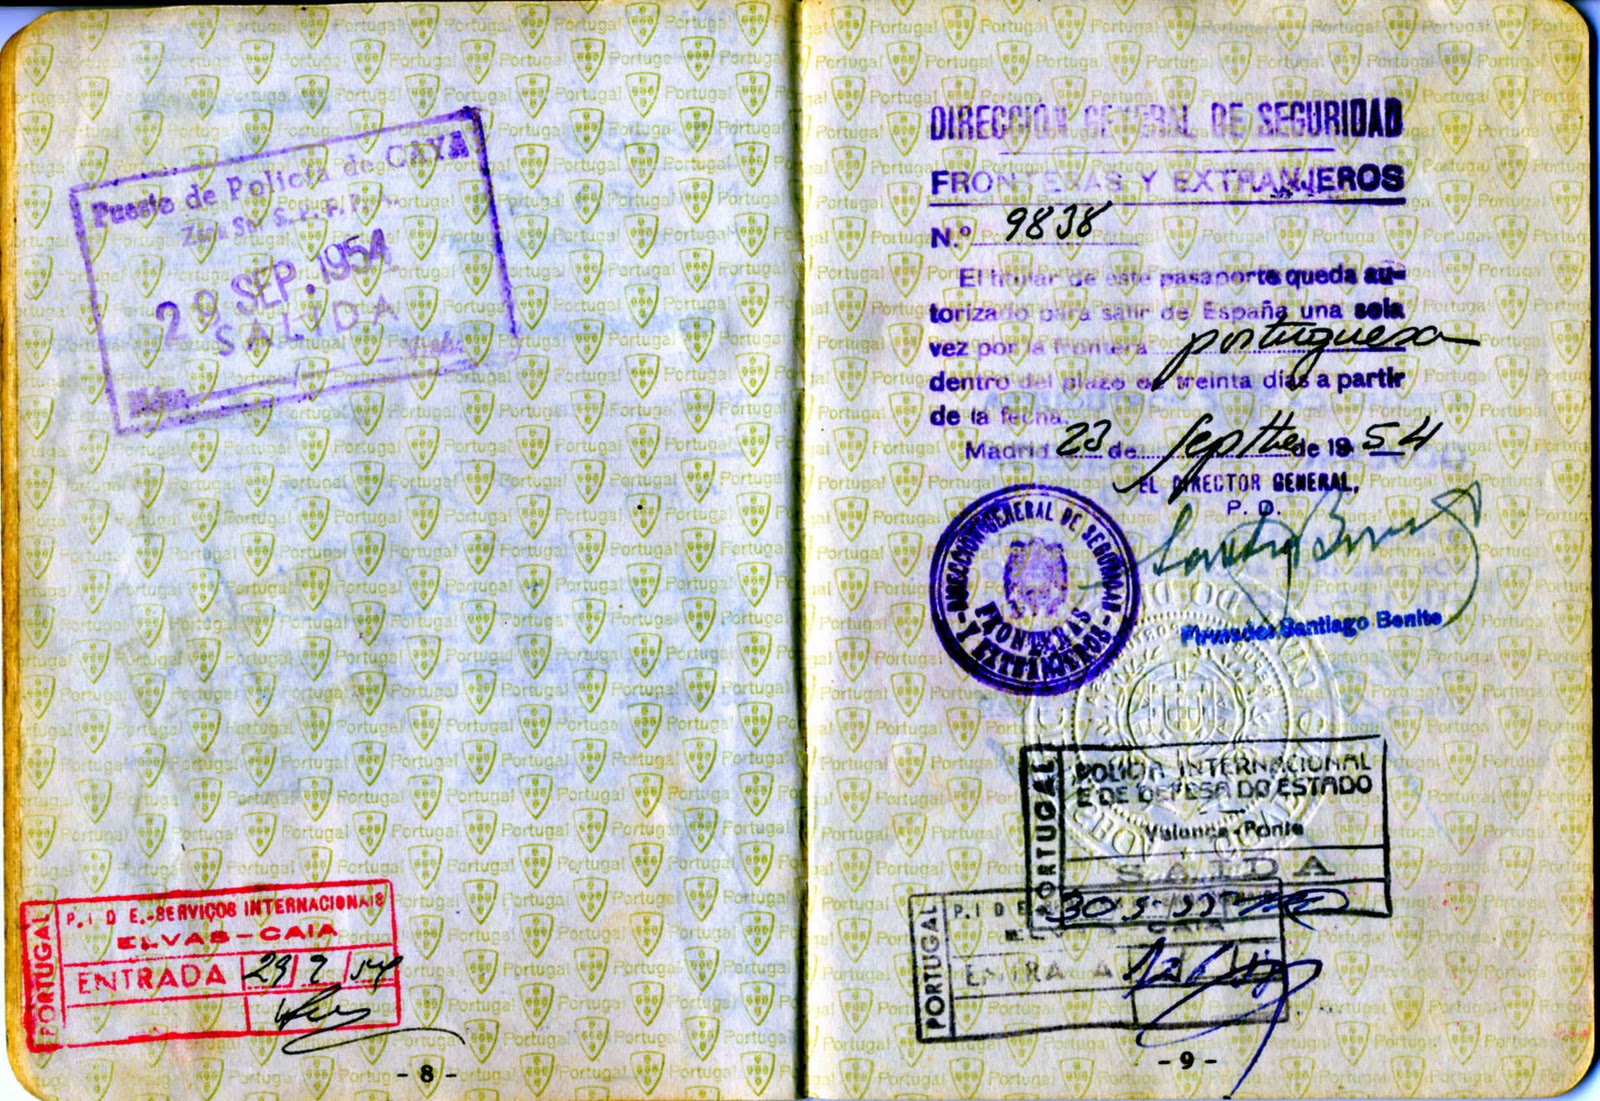 Puesto de Policía de CAYA
29 SEP. 1954
SALIDA
PORTUGAL
P. I D E.-SERVIÇOS INTERNACIONAIS
ELVAS-CAIA
ENTRADA 29/9/54
- 8 -
DIRECCION GENERAL DE SEGURIDAD
FRONTERAS Y EXTRANJEROS
N.º 9838
El titular de este pasaporte queda au-
torizado para salir de España una sola
vez por la frontera portuguesa
dentro del plazo de treinta días a partir
de la fecha.
Madrid 23 de Septbe de 1954
EL DIRECTOR GENERAL,
P. D.
DIRECCION GENERAL DE SEGURIDAD
FRONTERAS
Y EXTRANJEROS
Firmado: Santiago Benito
PORTUGAL
POLICIA INTERNACIONAL
E DE DEFESA DO ESTADO
Valença-Ponte
SAIDA
30 5
PORTUGAL
P. I D E
ELVAS-CAIA
ENTRADA
- 9 -